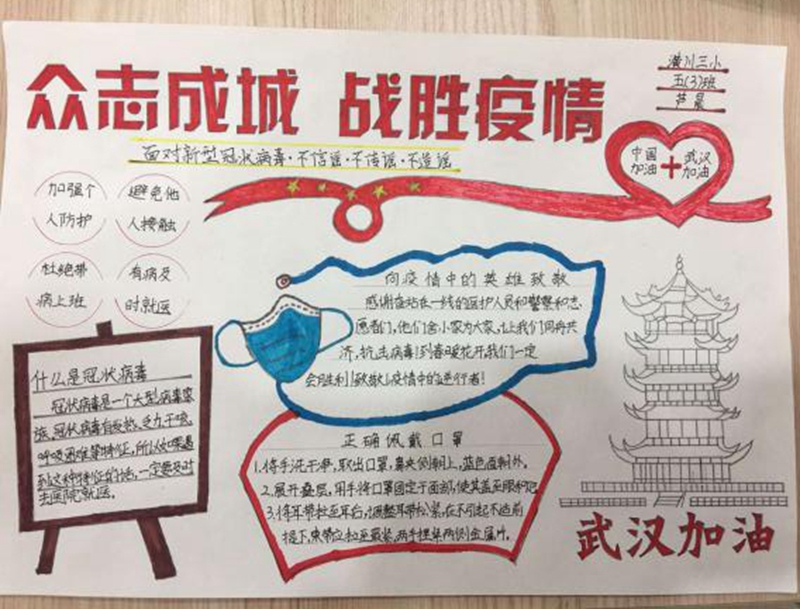 众志成城 战胜疫情
潢川三小
五(3)班
芦晨
面对新型冠状病毒·不信谣·不传谣·不造谣
中国
加油
武汉
加油
加强个
人防护
避免他
人接触
杜绝带
病上班
有病及
时就医
向疫情中的英雄致敬
感谢奋站在一线的医护人员和警察和志
愿者们,他们舍小家为大家,让我们同舟共
济,抗击病毒!到春暖花开,我们一定
会胜利!致敬!疫情中的逆行者!
什么是冠状病毒
冠状病毒是一个大型病毒家
族,冠状病毒有发热、乏力、干咳、
呼吸困难等特征,所以如果遇
到这种特征的话,一定要及时
去医院就医。
正确佩戴口罩
1.将手洗干净,取出口罩,鼻夹侧朝上,蓝色面朝外。
2.展开叠层,用手将口罩固定于面部,使其盖至眼
3.将耳带拉至耳后,调整耳带松紧,在不引起不适前
提下,束带应拉至最紧,两手捏紧两侧金属片。
武汉加油